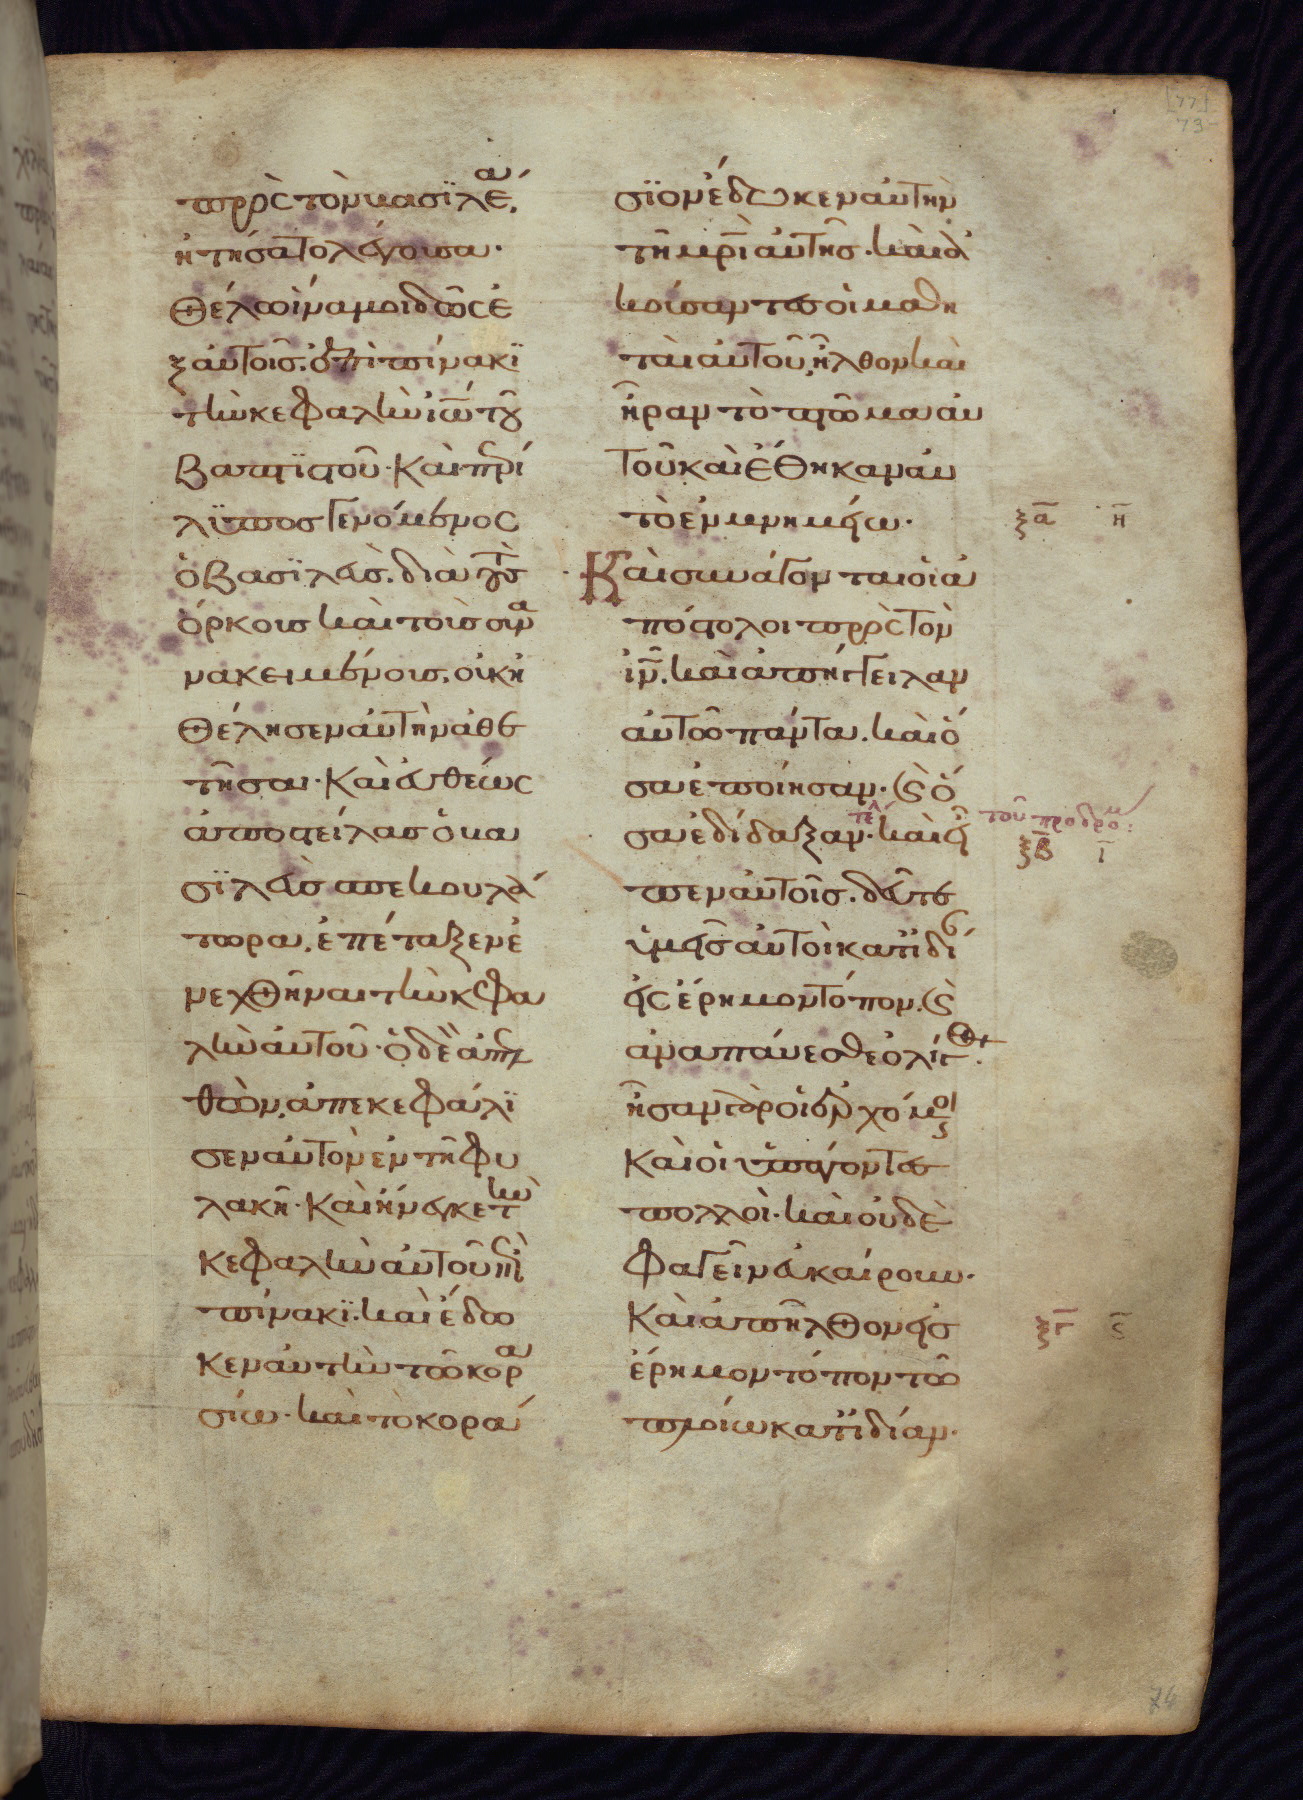 πρὸς τὸν βασιλέα,
ἠτήσατο λέγουσα·
Θέλω ἵνα μοι δῶς ἐ
ξ αὐτοῖς. ἐπὶ πίνακϊ
τὴν κεφαλὴν ἰω̅ τοῦ
Βαπτϊστοῦ· Καὶ περί
λϋπος γενόμενος
ὁ Βασϊλεὺς. διὰ τοὺς
ὅρκους καὶ τοὺς συνα
νακειμένους. οὐκ ἠ
Θέλησεν αὐτὴν ἀθε
τῆσαι· Καὶ εὐθέως
ἀποστείλας ὁ βα
σϊλεὺς σπεκουλά
τορα. ἐπέταξεν ἐ
νεχθῆναι τὴν κεφα
λὴν αὐτοῦ· ὁ δὲ ἀπελ
θὼν, ἀπεκεφάλϊ
σεν αὐτὸν ἐν τῆ φυ
λακῆ· Καὶ ἤνεγκε τὴν
κεφαλὴν αὐτοῦ ἐπὶ
πίνακϊ. καὶ ἔδω
κεν αὐτὴν τῶ κορα
σίω· καὶ τὸ κορά
σϊον ἔδωκεν αὐτὴν
τῆ μρ̅ι αὐτῆς· καὶ ἀ
κούσαντες οἱ μαθη
ταὶ αὐτοῦ, ἦλθον καὶ
ἦραν τὸ πτῶμα αὐ
τοῦ καὶ ἔθηκαν αὐ
τὸ ἐν μνημείω·
ξ̅α̅ η̅
Καὶ συνάγονται οἱ ἀ
πόστολοι πρὸς τὸν
ἰν̅. καὶ ἀπήγγειλαν
αὐτῶ πάντα. καὶ ὅ
σα ἐποίησαν· καὶ ὅ
σα ἐδίδαξαν· καὶ εἶ
τέλ τοῦ προδρομ:
ξ̅β̅ ι̅
πεν αὐτοῖς. δεῦτε
ὑμεῖς αὐτοὶ κατϊδί
εἰς ἔρημον τόπον. καὶ
ἀναπαύεσθε ὀλίγ.
ἦσαν γὰρ οἱ ἐρχόμενοι
Καὶ οἱ ὑπάγοντες
πολλοὶ· καὶ οὐδὲ
φαγεῖν εὐκαίρουν·
Καὶ ἀπῆλθον εἰς
ξ̅γ̅ ς̅
ἔρημον τόπον τῶ
πλοίω κατϊδίαν·
[77]
73
74